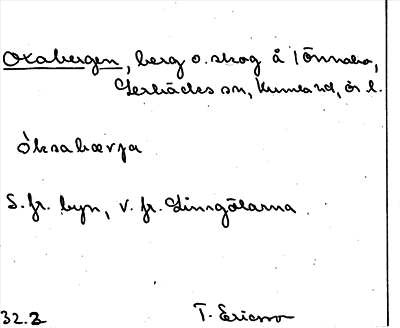 Oxabergen, berg o. skog å 1 Önnabo,
Lerbäcks sn, Kumla hd, Ör l.
Òksabærja
S. fr. byn, v. fr. Linngölarna
32.2
T. Ericsson